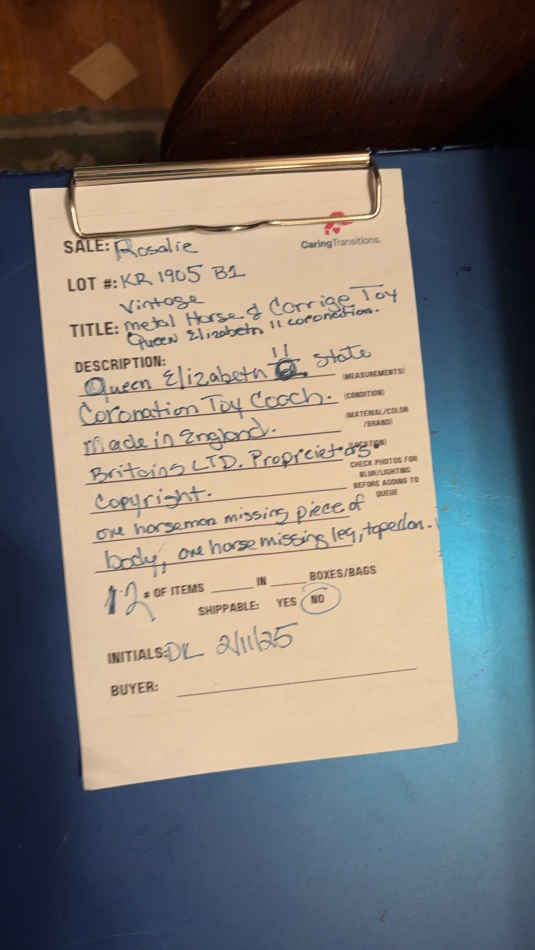 CaringTransitions.
SALE: Rosalie
LOT #: KR 1905 B1
Vintage
TITLE: metal Horse & Carrige Toy
Queen Elizabeth 11 coronection.
DESCRIPTION:
Queen Elizabeth 11 State
(MEASUREMENTS)
Coronation Toy Coach.
(CONDITION)
(MATERIAL/COLOR
/BRAND)
made in England.
(LOCATION)
Britains LTD. Propricietors.
CHECK PHOTOS FOR
BLUR/LIGHTING
BEFORE ADDING TO
QUEUE
Copyright.
one horseman missing piece of
body, one horse missing leg, taped on.
12 # OF ITEMS ____ IN ____ BOXES/BAGS
SHIPPABLE: YES NO
INITIALS: DL 2/11/25
BUYER: